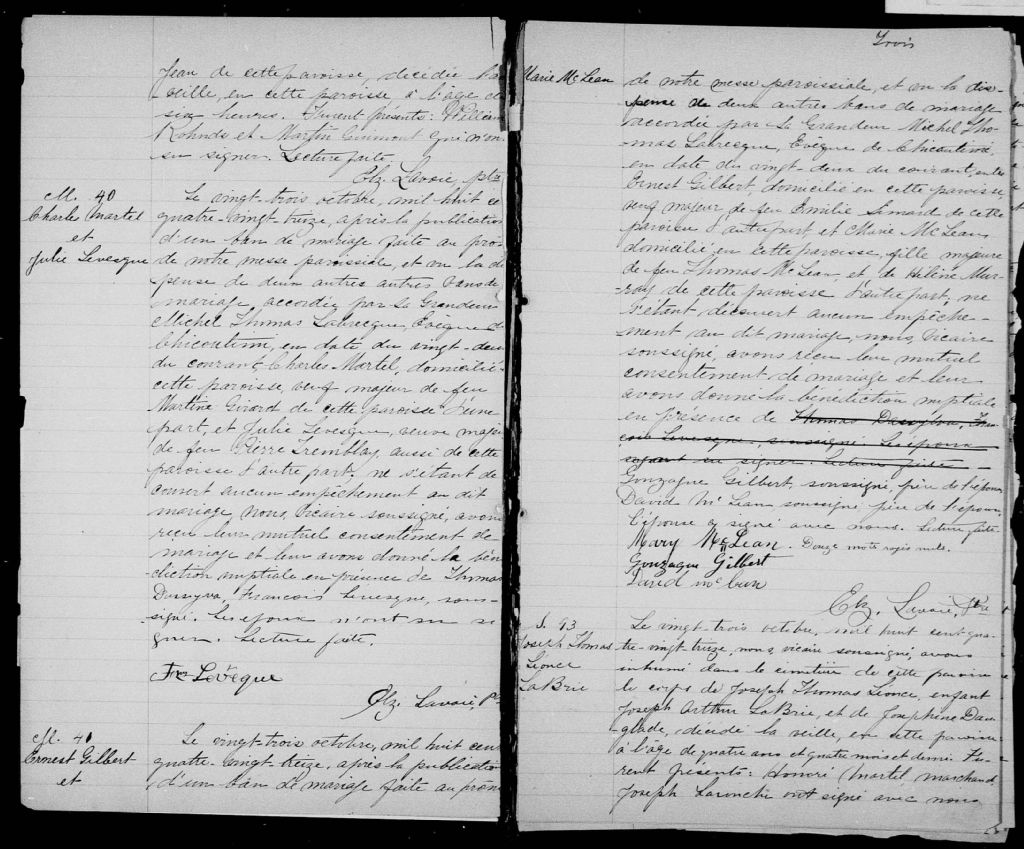 Jean de cette paroisse, décédée la
veille, en cette paroisse à l'âge de
six heures. Furent présents: William
et Martin Guimont qui n'ont
su signer. Lecture faite.
Elz. Lavoie, ptre
M. 40
Charles Martel
et
Julie Levesque
Le vingt-trois octobre, mil huit ce
quatre-vingt-treize, après la publication
d'un ban de mariage faite au pro
de notre messe paroissiale, et vu la dis
pense de deux autres autres bans de
mariage, accordée par Sa Grandeur
Michel Thomas Labrecque, Evêque de
Chicoutimi, en date du vingt-deux
du courant, Charles Martel, domicilié
cette paroisse, veuf majeur de feu
Martine Girard de cette paroisse d'une
part, et Julie Levesque, veuve maje
de feu Pierre Tremblay, aussi de cette
paroisse d'autre part, ne s'étant dé
couvert aucun empêchement au dit
mariage, nous, Vicaire soussigné, avons
reçu leur mutuel consentement de
mariage et leur avons donné la béné
diction nuptiale en présence de Thomas
François Levesque, sous-
signé. Les époux n'ont su si
gner. Lecture faite.
Frs Lévêque
Elz. Lavoie, Ptr
M. 41
Ernest Gilbert
et
Le vingt-trois octobre, mil huit cent
quatre-vingt-treize, après la publication
d'un ban de mariage faite au prone
Trois
Marie McLean
de notre messe paroissiale, et vu la dis-
pense de deux autres bans de mariage
accordée par Sa Grandeur Michel Tho-
mas Labrecque, Evêque de Chicoutimi,
en date du vingt-deux du courant, entre
Ernest Gilbert, domicilié en cette paroisse,
veuf majeur de feu Emilie Simard de cette
paroisse d'autre part et Marie McLean,
domiciliée en cette paroisse, fille majeure
de feu Thomas McLean, et de Hélène Mur-
ray de cette paroisse d'autre part, ne
s'étant découvert aucun empêche-
ment au dit mariage, nous, Vicaire
soussigné, avons reçu leur mutuel
consentement de mariage et leur
avons donné la bénédiction nuptiale
en présence de Thomas Fran-
çois Levesque, soussigné. Les époux
ayant su signer. Lecture faite
Gonzague Gilbert, soussigné, père de l'époux,
David McLean soussigné père de l'épouse,
l'épouse a signé avec nous. Lecture faite.
Mary McLean. Douze mots rayés nuls.
Gonzague Gilbert
David mclean
Elz. Lavoie, Ptre
S. 93
Joseph Thomas
Léonce
LaBrie
Le vingt-trois octobre, mil huit cent qua-
tre-vingt-treize, nous, vicaire soussigné, avons
inhumé dans le cimetière de cette paroisse
le corps de Joseph Thomas Léonce, enfant
Joseph Arthur LaBrie, et de Joséphine Dau
glade, décédé la veille, en cette paroisse
à l'âge de quatre ans et quatre mois et demi. Fu-
rent présents: Honoré Martel, marchand,
Joseph Larouche ont signé avec nous